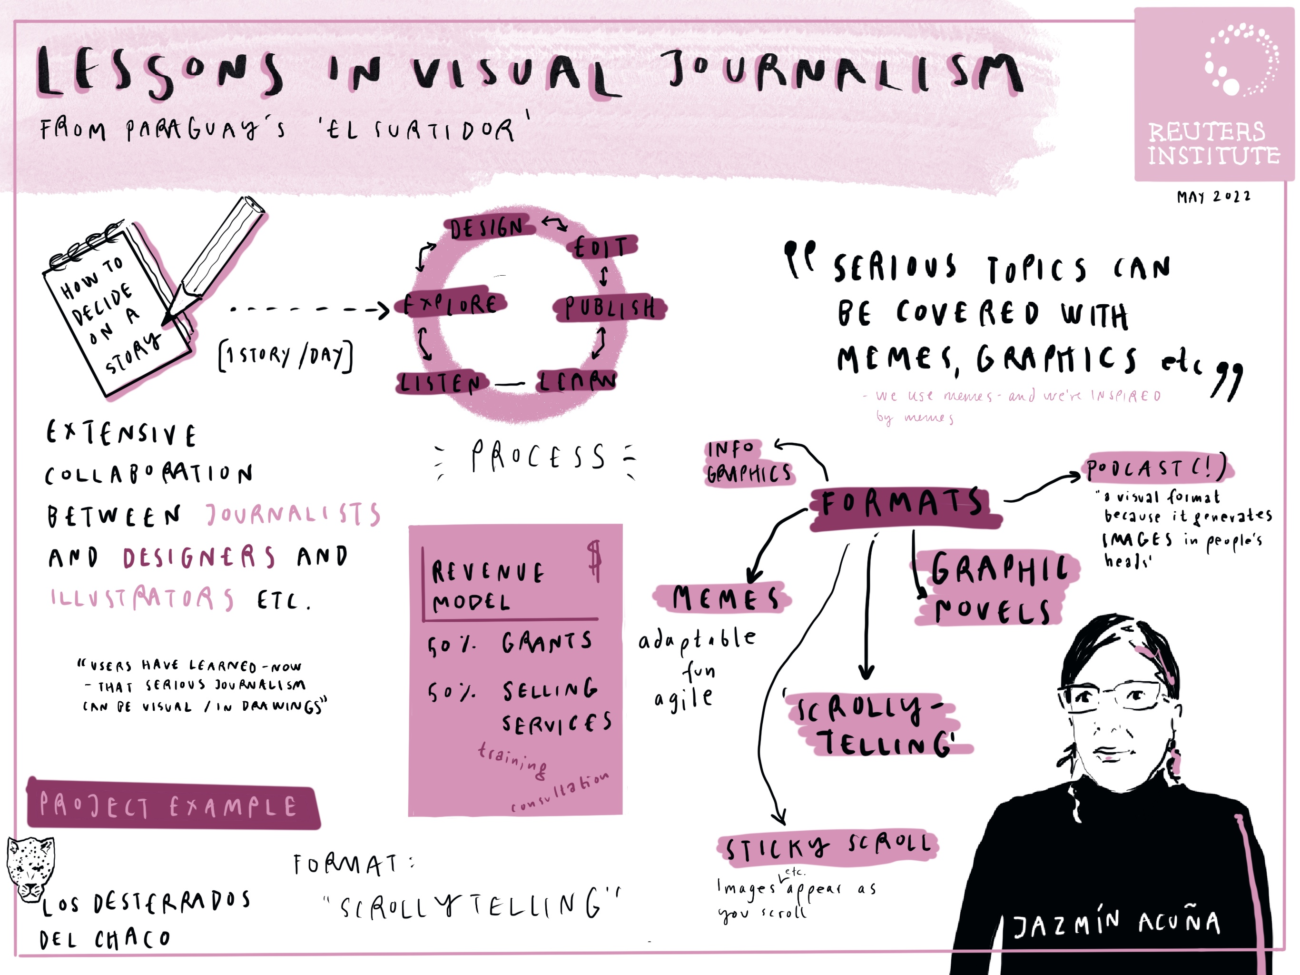 LESSONS IN VISUAL JOURNALISM
FROM PARAGUAY'S 'EL SURTIDOR'
REUTERS
INSTITUTE
MAY 2022
HOW TO
DECIDE
ON A
STORY
[1 STORY / DAY]
DESIGN
EDIT
EXPLORE
PUBLISH
LISTEN
LEARN
PROCESS
"SERIOUS TOPICS CAN
BE COVERED WITH
MEMES, GRAPHICS etc"
- we use memes - and we're INSPIRED
by memes
EXTENSIVE
COLLABORATION
BETWEEN JOURNALISTS
AND DESIGNERS AND
ILLUSTRATORS ETC.
"USERS HAVE LEARNED - NOW
- THAT SERIOUS JOURNALISM
CAN BE VISUAL / IN DRAWINGS"
REVENUE $
MODEL
50%. GRANTS
50%. SELLING
SERVICES
training
consultation
FORMATS
INFO
GRAPHICS
PODCAST(!)
"a visual format
because it generates
IMAGES in people's
heads'
MEMES
adaptable
fun
agile
GRAPHIC
NOVELS
'SCROLLY-
TELLING'
STICKY SCROLL
Images etc. appear as
you scroll
PROJECT EXAMPLE
LOS DESTERRADOS
DEL CHACO
FORMAT:
"SCROLLYTELLING"
JAZMÍN ACUÑA